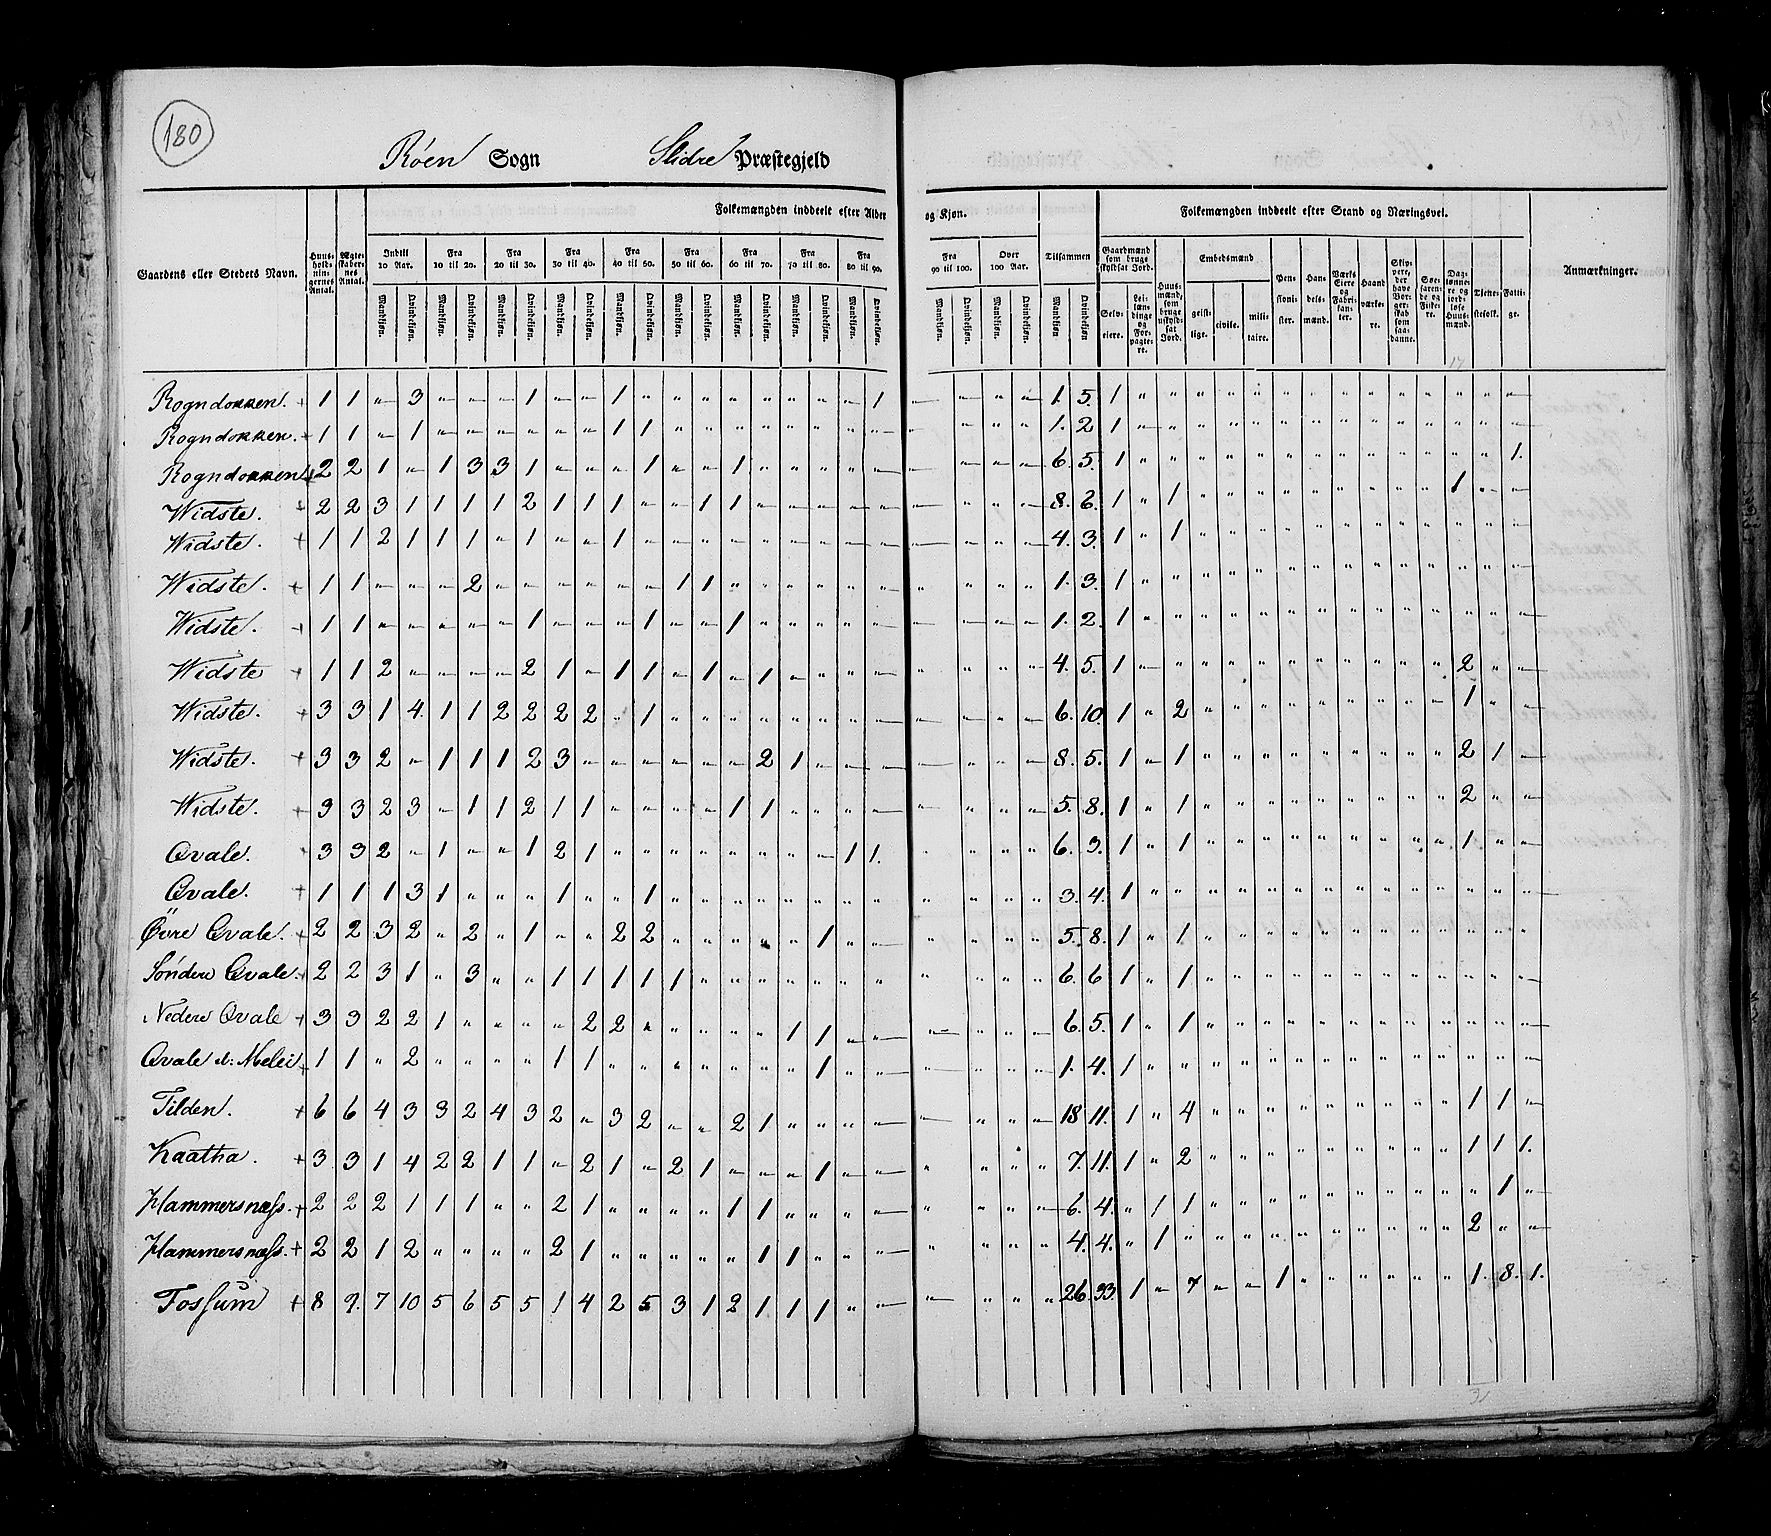 180
Røen Sogn Slidre Præstegjeld
Gaardens eller Stedets Navn.
Huus-holdnin-gernes Antal.
Ægte-skaber-nes Antal.
Folkemængden inddeelt efter Alder og Kjøn.
Indtil 10 Aar. Fra 10 til 20. Fra 20 til 30. Fra 30 til 40. Fra 40 til 50. Fra 50 til 60. Fra 60 til 70. Fra 70 til 80. Fra 80 til 90. Fra 90 til 100. Over 100 Aar. Tilsammen
Mandkjøn. Qvindekjøn.
Folkemængden inddeelt efter Stand og Næringsvei.
Gaardmænd som bruge skyldsat Jord.
Selv-eiere. Lei-læn-dinge og For-pagte-re.
Huus-mænd, som bruge uskyld-sat Jord.
Embedsmænd
geist-lige. civile. mili-taire.
Pen-sioni-ster. Han-dels-mænd. Værks Eiere og Fabri-kan-ter. Haand værke-re. Skip-pere, der have Bor-ger-skab som saa-danne. Søe-faren-de og Fiske-re. Dag-lønne-re og jord-løse Huus-mænd. Tjene-stefolk. Fatti-ge.
Anmærkninger.
17
Rogndokken. + 1 1 " 3 " " " 1 " " 1 " " " " " " " 1 1. 5. 1
Rogndokken. + 1 1 " 1 " " " " " " 1 1 " " " " " " " 1. 2 1
Rogndokken + 2 2 1 " 1 3 3 1 " " " 1 " " 1 " " " " 6. 5. 1 1.
Widste. + 2 2 3 1 1 1 1 2 1 1 1 " " 1 1 " " " " 8. 6. 1 " 1 1
Widste. + 1 1 2 1 1 1 " 1 " " 1 " " " " " " " " 4. 3. 1 " 1
Widste. + 1 1 " " " 2 " " " " " " 1 1 " " " " " 1. 3. 1
Widste. + 1 1 " " " " " 1 " " " 1 " " 1 " " " " 1. 2. 1
Widste + 1 1 2 " " " " 2 1 " 1 1 " 1 " 1 " " " 4. 5. 1 2
Widste. + 3 3 1 4. 1 1 2 2 2 2 " 1 " " " " " " " 6. 10. 1 " 2 1
Widste. + 3 3 2 " 1 1 1 2 3 " " " " " " 2 1 " " 8. 5. 1 " 1 2 1
Widste. + 3 3 2 3 " 1 1 2 1 1 " " " " 1 1 " " " 5. 8. 1 " 1 2
Qvale. 3 3 2 " 1 " " 1 2 1 " " " " " " " " 1 1. 6. 3. 1 " 1 1
Qvale. + 1 1 1 3 1 " " " 1 " " 1 " " " " " " " 3. 4. 1
Øvre Qvale. + 2 2 3 2 " 2 " 1 " " 2 2 " " " " " 1 " " 5. 8. 1 " 1
Søndre Qvale. + 2 2 3 1 " 3 " " 1 1 1 1 1 " " " " " " 6. 6 1 " 1
Nedere Qvale + 3 3 2 2 1 " " " " 2 2 " " " " " 1 1 " " 6. 5. 1 " 1
Qvale d: Melei + 1 1 " 2 " " " " 1 1 " " " " " " " 1 " " 1. 4. 1
Tilden. + 6 6 4 3 3 2 4 3 2 " 3 2 " " 2 1 " " " " 18 11. 1 " 4 1 1
Kaatha. + 3 3 1 4 2 2 1 1 " 2 1 " 2 1 " " " 1 " " 7. 11. 1 " 2 1 1 1.
Hammersnæss. + 2 2 2 1 1 1 " " 2 1 " " " " 1 1 " " " " 6. 4. " 1 1 1
Hammersnæss. + 2 2 1 2 " " " " 2 1 " " " " " 1 1 " " " 4. 4. " 1 2
Fossum + 8 9. 7 10 5 6 5 5 1 4 2 5 3 1 2 1 1 1 " " 26. 33. 1 " 7 " " 1 1. 8. 1.